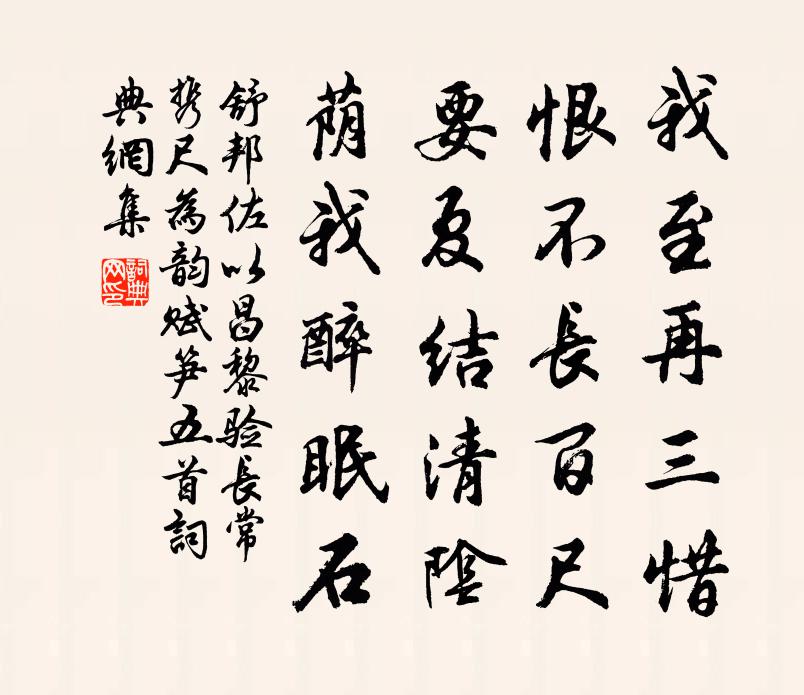 我至再三惜
恨不長百尺
要夏结清陰
荫我醉眠石
舒邦佐以昌黎验長常
携尺為韵赋笋五首詞
典網集
詞典网印